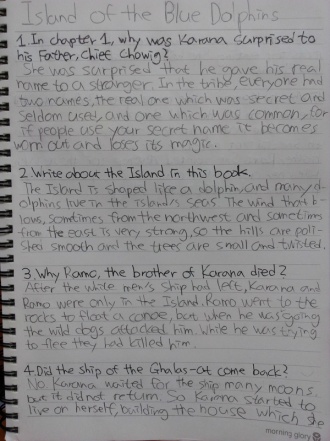 Island of the Blue Dolphins
1. In chapter 1, why was Karana surprised to
his Father, Chief Chowig?
She was surprised that he gave his real
name to a stranger. In the tribe, everyone had
two names, the real one which was secret and
seldom used, and one which was common, for
if people use your secret name it becomes
worn out and loses its magic.
2. Write about the Island in this book.
The Island is shaped like a dolphin, and many d-
olphins live in the island's seas. The wind that b-
lows, somtimes from the northwest and sometims
from the east is very strong, so the hills are poli-
shed smooth and the trees are small and twisted.
3. Why Ramo, the brother of Karana died?
After the white men's ship had left, Karana and
Romo were only in the Island. Romo went to the
rocks to float a canoe, but when he was going
the wild dogs attacked him. While he was trying
to flee they had killed him.
4. Did the ship of the Ghalas-at come back?
No. Karana waited for the ship many moons
but it did not return. So Karana started to
live on herself, building the house which she
morning glory